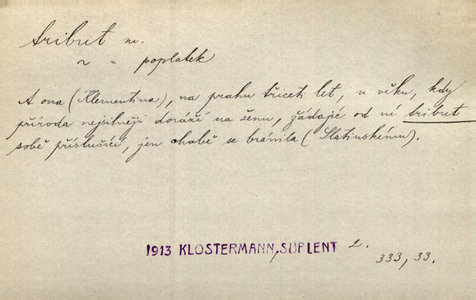 tribut m.
~ = poplatek
A ona (Klementina), na prahu třiceti let, v věku, kdy
příroda nejsilněji doráží na ženu, žádajíc od ní tribut
sobě příslušící, jen chabě se bránila (Slatinskému).
1913 KLOSTERMANN, SUPLENT 2.
333, 33.